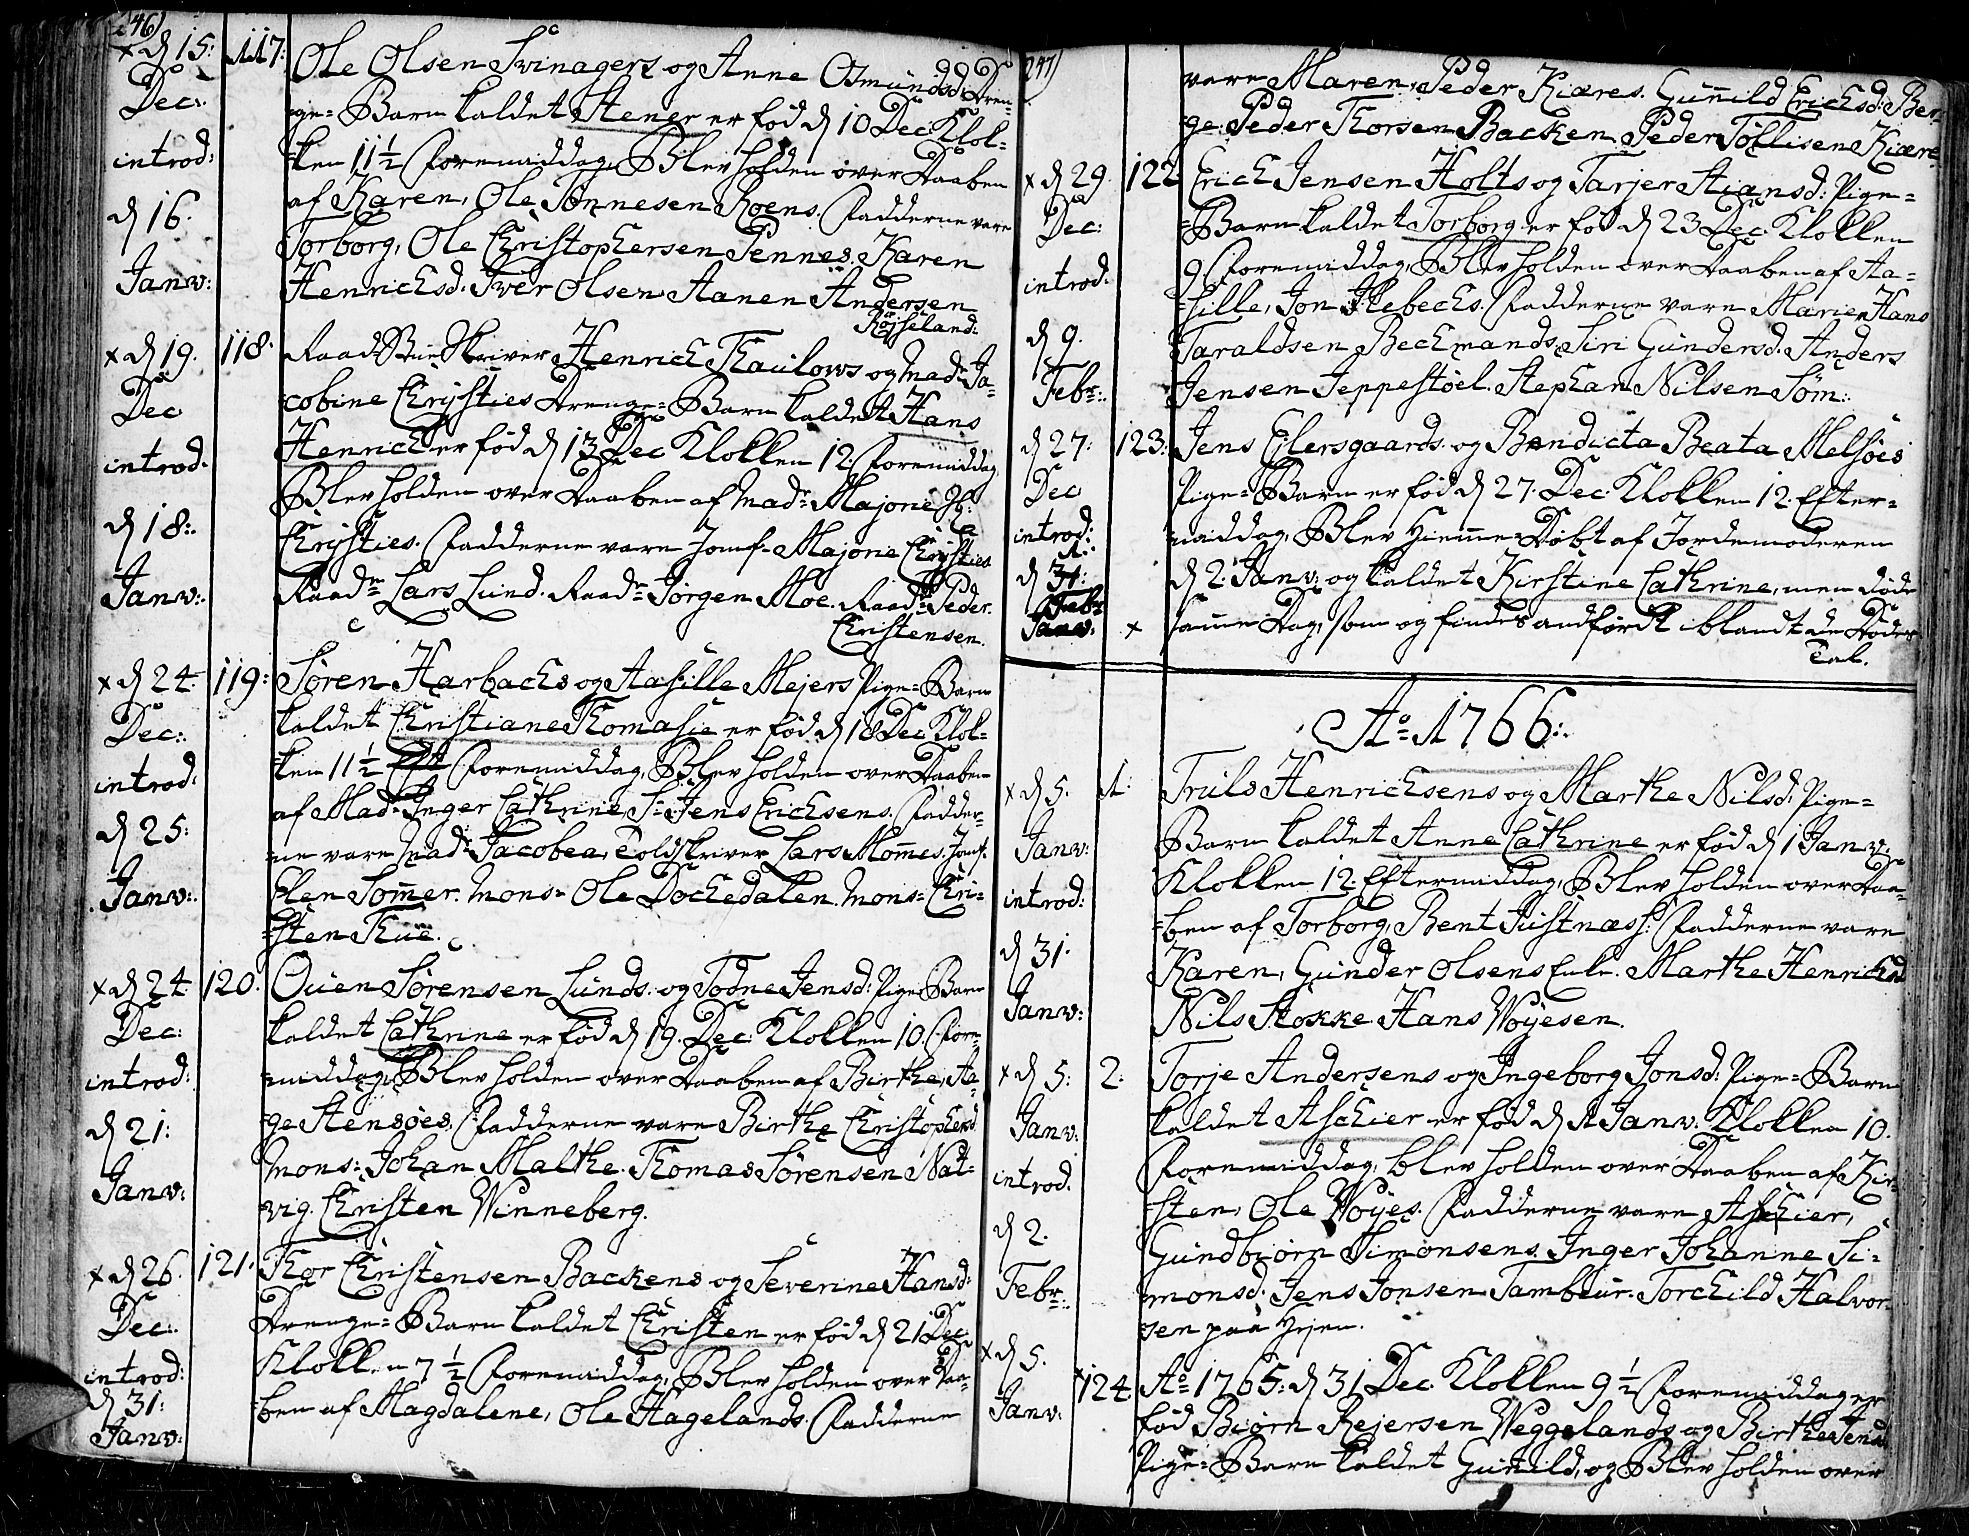 246)
x d 15: Dec: introd: d 16. Janv:
117: Ole Olsen Svinagers og Anne Osmundsd: Dren-
ge-Barn kaldet Stener er fød d 10 Dec: Klok-
ken 11½ Formiddag, Blev holden over Daaben
af Karen, Ole Tønnesen Roens. Fadderne vare
Torborg, Ole Christophersen Pennes. Karen
Henrichsd. Iver Olsen. Aanen Andersen
Røjseland:
x d 19. Dec introd. d 18: Janv:
118. Raadstue Skriver Henrich Thaulows og Mad: Ja-
cobine Christies Drenge-Barn kaldet Hans
Henrich er fød d 13 Dec Klokken 12. Formiddag,
Blev holden over Daaben af Mad: Majorie
Christies. Fadderne vare Jomf: Majorie Christies
Raadm Lars Lund. Raadm Jørgen Moe. Raadm Peder
Christensen.
x d 24. Dec: introd: d 25: Janv:
119: Søren Harbachs og Aasille Mejers Pige-Barn
kaldet Christiane Thomasie er fød d 18 Dec Klok-
ken 11½ Formiddag, Blev holden over Daaben
af Mad: Inger Cathrine, Sr: Jens Erichsens. Fadder-
ne vare Mad: Jacobea, Toldskriver Lars Mommes. Jomf.
Elen Sommer. Mons: Ole Dochedalen. Mons: Chri-
sten Thue.
x d 24. Dec: introd: d 21: Janv:
120. Ouen Sørensen Lunds. og Todne Jensd: Pige-Barn
kaldet Cathrine er fød d 19. Dec: Klokken 10. For-
middag, Blev holden over Daaben af Birthe, Aa-
ge Stensøes, Fadderne vare Birthe Christophersd
Mons: Johan Malthe. Thomas Sørensen Nat-
vig. Christen Winneberg.
x d 26. Dec: introd: d 31: Janv:
121. Thor Christensen Backens og Severine Hansd:
Drenge-Barn kaldet Christen er fød d 21 Dec:
Klokken 7½ Formiddag, Blev holden over Daa-
ben af Magdalene, Ole Hagelands. Fadderne
247)
vare Maren, Peder Kiæres. Gunnild Erichsd: Ber-
ge. Peder Thorsen Backen. Peder Tøllisen Kiære
x d 29. Dec: introd. d 9. Febr:
122 Erich Jensen Holts og Tarjer Stiansd: Pige-
Barn kaldet Torborg er fød d 23 Dec. Klokken
9. Formiddag, Blev holden over Daaben af Aa-
sille, Jon Flebecks. Fadderne vare Marie, Hans
Taraldsen Bechmands. Siri Gundersd. Anders
Jensen Jeppestøel. Stephan Nilsen Søm:
d 27: Dec introd: d 1: Febr
123: Jens Eilersgaards og Bendicta Beata Melsøes
Pige-Barn er fød d 27. Dec: Klokken 12. Efter-
middag, Blev Hiemme-Døbt af Jordemoderen
d 2. Janv: og kaldet Kirstine Cathrine, men døde
x samme Dag, som og findes andført iblandt de Dødes
Tal.
Ao 1766:
x d 5. Janv: introd: d 31: Janv:
1: Truls Henrichsens og Marthe Nilsd: Pige-
Barn kaldet Anne Cathrine er fød d 1 Janv:
Klokken 12 Eftermiddag, Blev holden over Daa-
ben af Torborg, Bent Justnæs: Fadderne vare
Karen, Gunder Olsens Enke. Marthe Henrichsd
Nils Stokke. Hans Woyesen.
x d 5: Janv: introd. d 2. Febr:
2. Torje Andersens og Ingeborg Jonsd: Pige-Barn
kaldet Aschier er fød d 1 Janv: Klokken 10.
Formiddag, blev holden over Daaben af Kir-
sten, Ole Woyes. Fadderne vare Aschier,
Gundbiørn Simonsens. Inger Johanne Si-
monsd. Jens Jonsen Tambour. Torchild Halvor-
sen paa Hejen.
x d 5. Janv:
x124 Ao 1765: d 31 Dec: Klokken 9½ Formiddag er
fød Biørn Rejersen Weggelands og Birthe Jensd
Pige-Barn kaldet Gunild, og Blev holden over